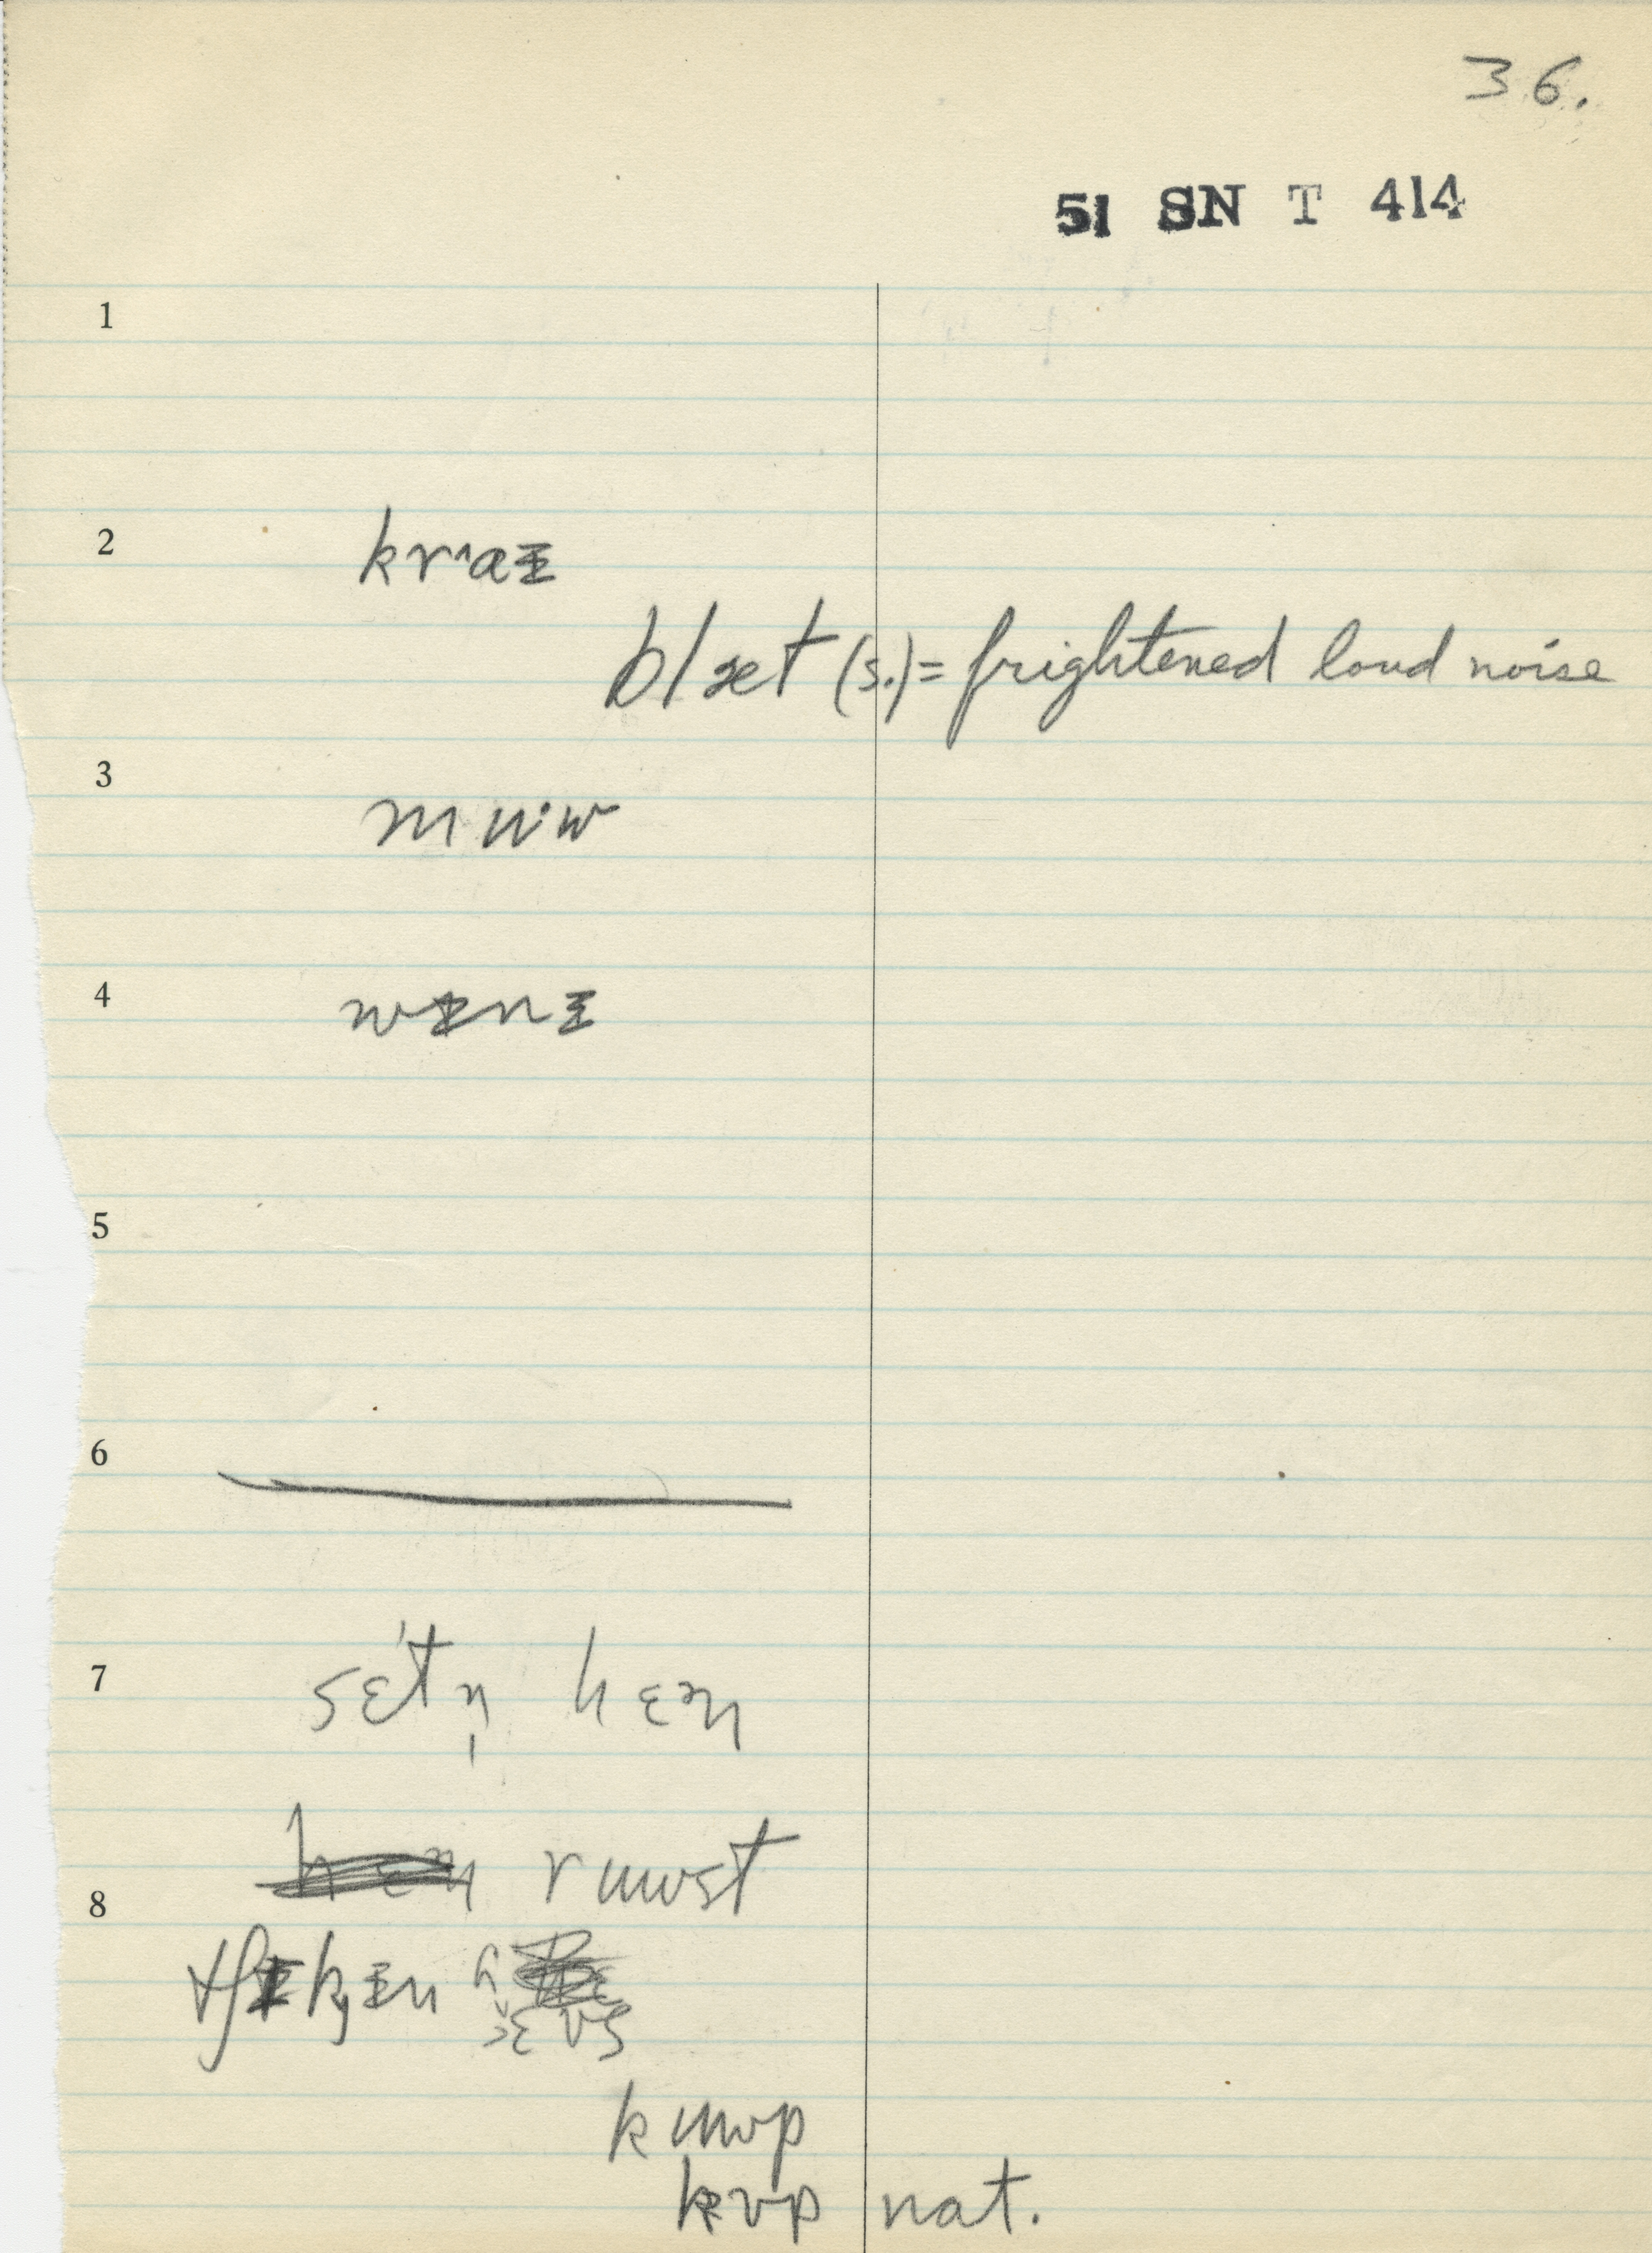 36.
51 SN T 414
1
2 krˆaɪ
blæt (s.) = frightened loud noise
3 muˑw
4 wɪnɪ
5
6
7 sɛ́tn̩ hɛn
8 ruwst
hɛʊs
kuwp
kʊp nat.